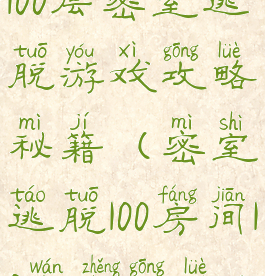 100层密室逃
tuō yóu xì gōng lüè
脱游戏攻略
mì jí mì shì
秘籍（密室
táo tuō fáng jiān
逃脱100房间1
wán zhěng gōng lüè